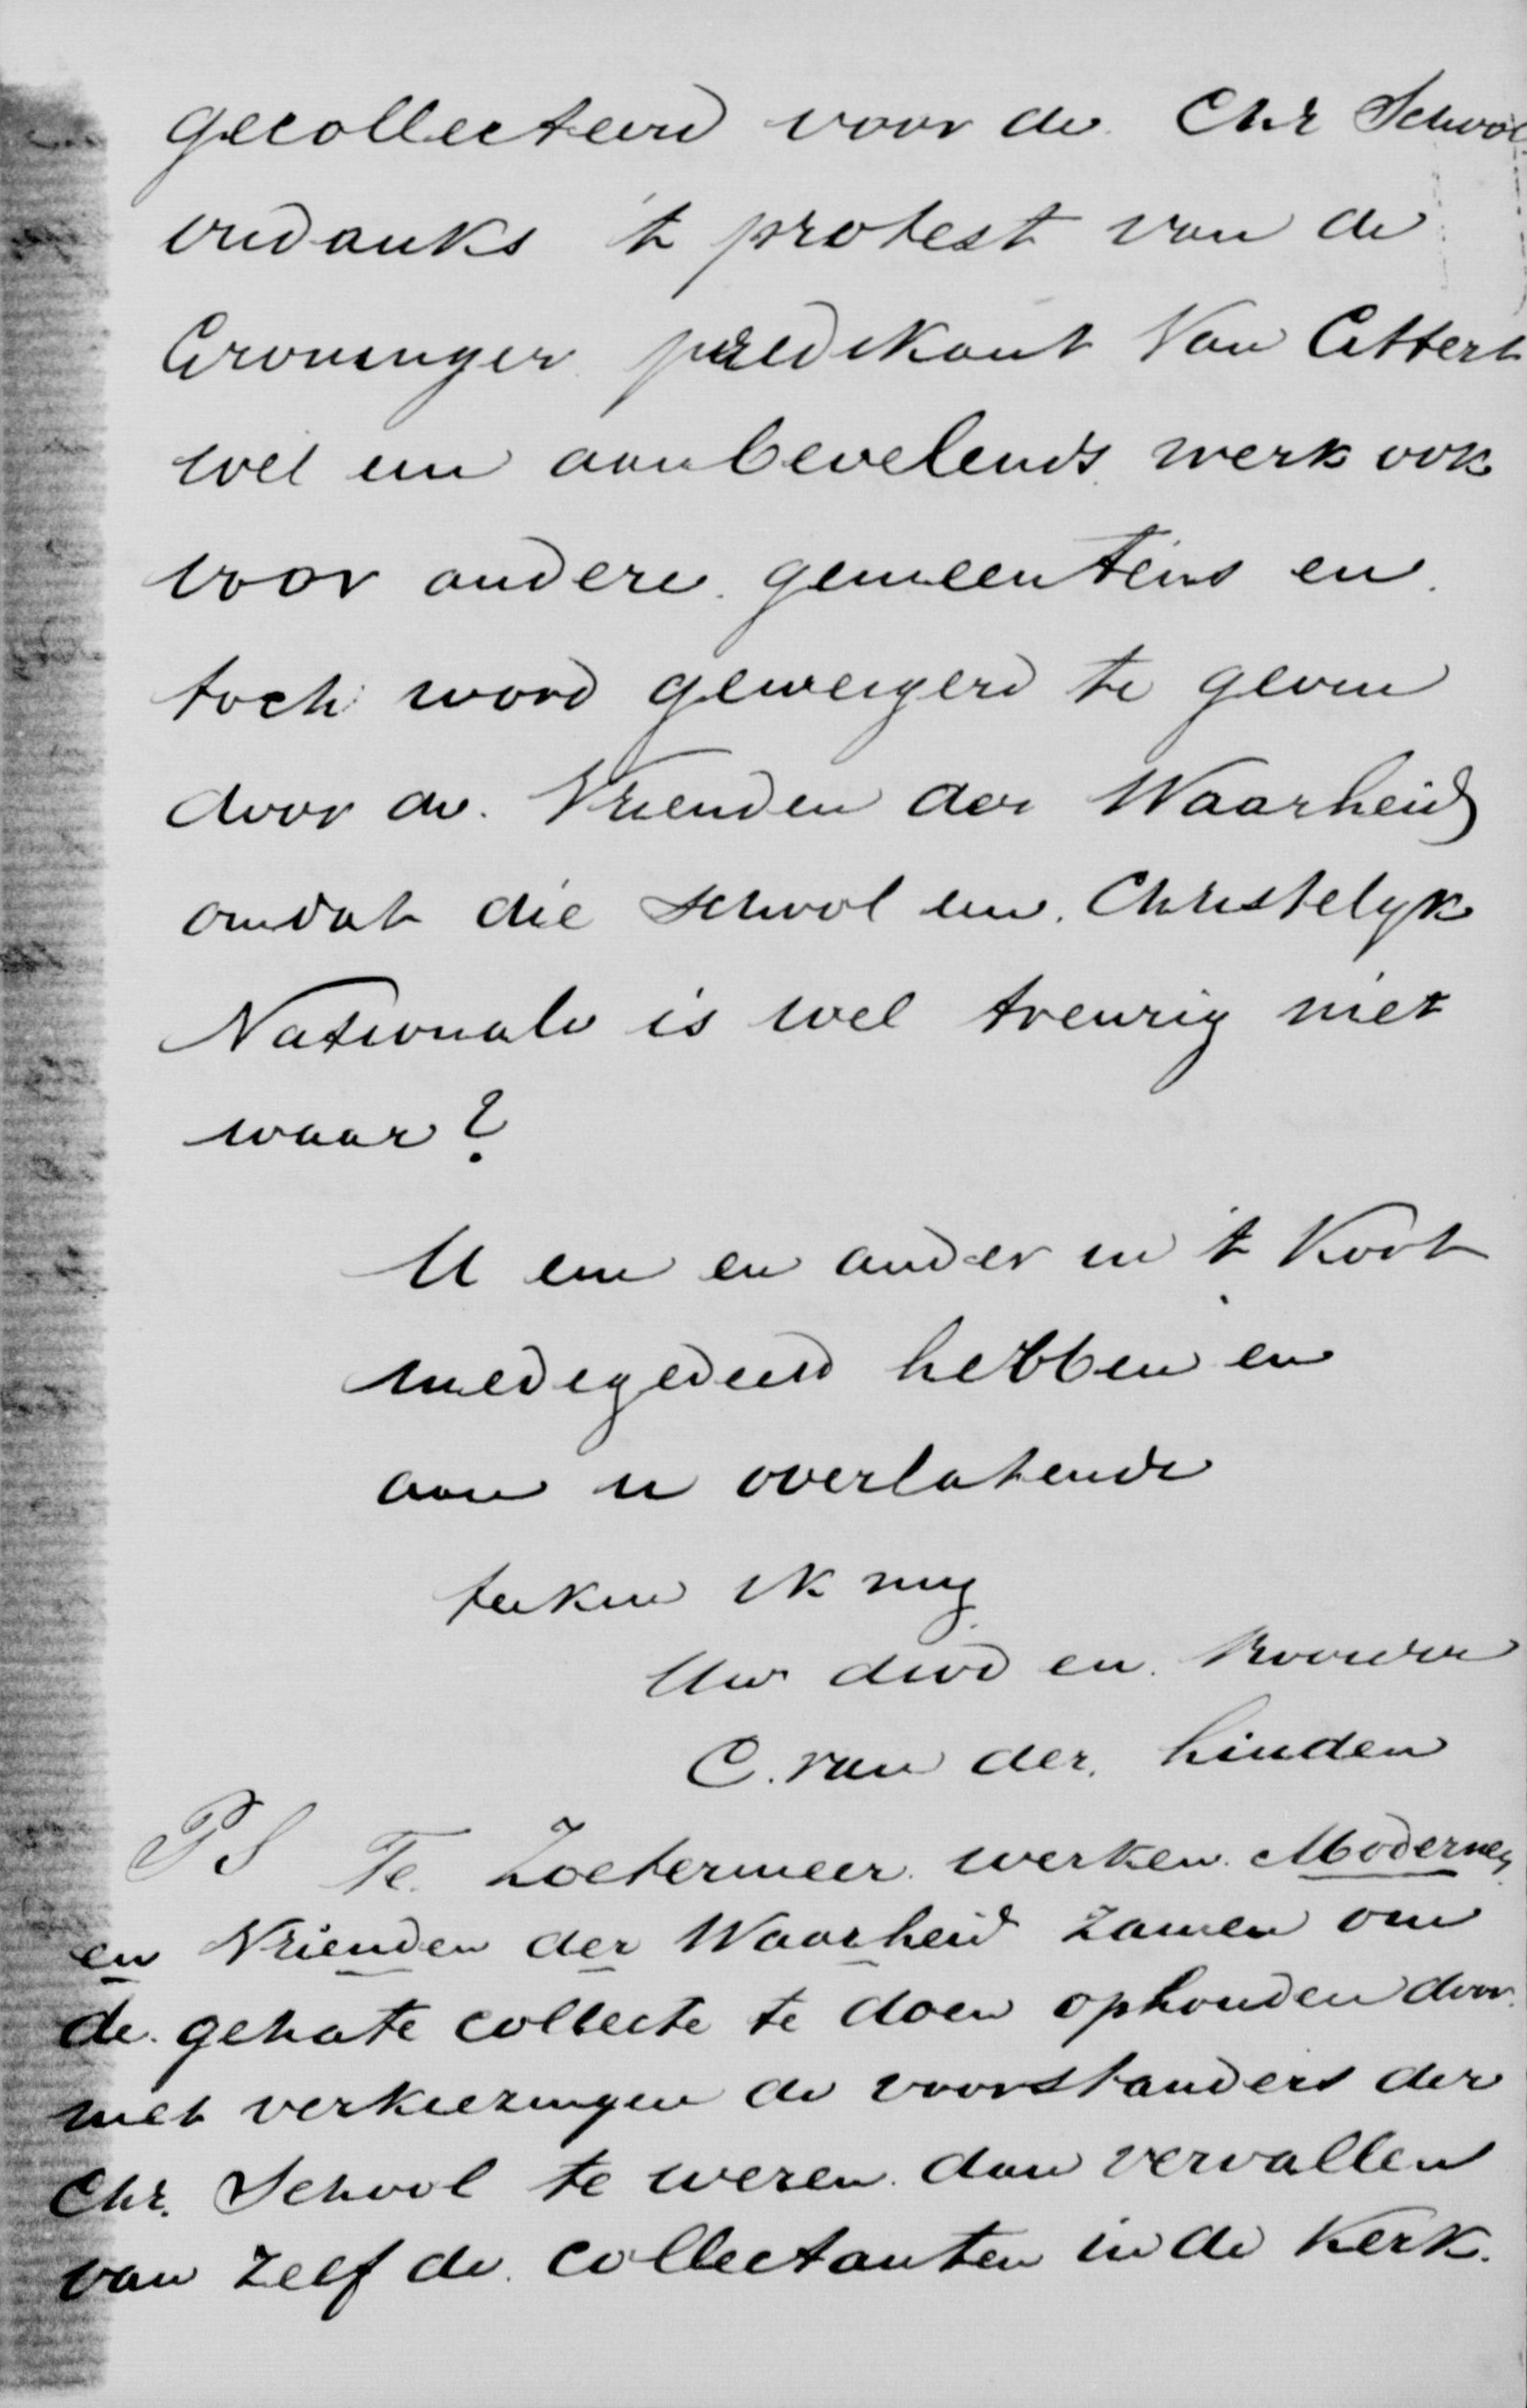 gecollecteerd voor de Chr School
ondanks 't protest van de
Groninger predikant Van Cittert
wel een aanbevelends werk ook
voor andere gemeentens en
toch word geweigerd te geven
door de Vrienden der Waarheid
omdat die School een Christelyk
Nationale is wel treurig niet
waar?
U een en ander in 't Kort
medegedeeld hebben en
aan u overlatende
teeken ik my
Uw dwd en
C. van der Linden
PS Te Zoetermeer werken Modernen
en Vrienden der Waarheid zamen om
de gehate collecte te doen ophouden door
met verkiezingen de voorstanders der
Chr. School te weren dan vervallen
van zelf de collectanten in de Kerk.